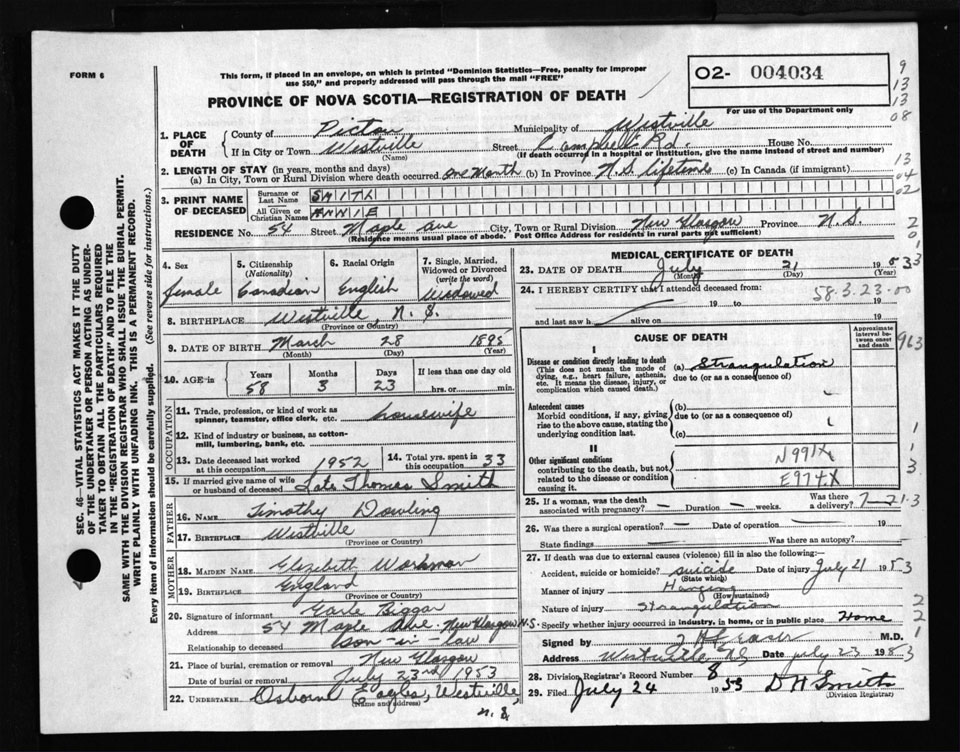 FORM 6
This form, if placed in an envelope, on which is printed "Dominion Statistics—Free, penalty for improper
use $50," and properly addressed will pass through the mail "FREE"
O2- 004034
For use of the Department only
PROVINCE OF NOVA SCOTIA—REGISTRATION OF DEATH
1. PLACE OF DEATH
County of Pictou Municipality of Westville
If in City or Town Westville Street Campbell Rd. House No.
(Name) (If death occurred in a hospital or institution, give the name instead of street and number)
2. LENGTH OF STAY (in years, months and days)
(a) In City, Town or Rural Division where death occurred One Month (b) In Province N.S. lifetime (c) In Canada (if immigrant)
3. PRINT NAME OF DECEASED
Surname or Last Name SMITH
All Given or Christian Names ANNIE
RESIDENCE No. 54 Street Maple Ave City, Town or Rural Division New Glasgow Province N.S.
(Residence means usual place of abode. Post Office Address for residents in rural parts not sufficient)
4. Sex female
5. Citizenship (Nationality) Canadian
6. Racial Origin English
7. Single, Married, Widowed or Divorced (write the word) Widowed
8. BIRTHPLACE Westville, N.S.
(Province or Country)
9. DATE OF BIRTH March 28 1895
(Month) (Day) (Year)
10. AGE in Years Months Days If less than one day
58 3 23 hrs. or min.
OCCUPATION
11. Trade, profession, or kind of work as spinner, teamster, office clerk, etc. housewife
12. Kind of industry or business, as cotton-mill, lumbering, bank, etc.
13. Date deceased last worked at this occupation 1952
14. Total yrs. spent in this occupation 33
15. If married give name of wife or husband of deceased Late Thomas Smith
FATHER
16. NAME Timothy Dowling
17. BIRTHPLACE Westville
(Province or Country)
MOTHER
18. MAIDEN NAME Elizabeth Workman
19. BIRTHPLACE England
(Province or Country)
20. Signature of informant Earle Biggar
Address 54 Maple Ave. New Glasgow N.S.
Relationship to deceased Son-in-law
21. Place of burial, cremation or removal New Glasgow
Date of burial or removal July 23rd 1953
22. UNDERTAKER Osborne Eagles, Westville
(Name and address)
N.S.
MEDICAL CERTIFICATE OF DEATH
23. DATE OF DEATH July 21 1953
(Month) (Day) (Year)
24. I HEREBY CERTIFY that I attended deceased from:
58.3.23-00
19 to 19
and last saw h alive on 19
CAUSE OF DEATH
Approximate interval between onset and death
I
Disease or condition directly leading to death
(This does not mean the mode of dying, e.g., heart failure, asthenia, etc. It means the disease, injury, or complication which caused death.)
(a) Strangulation
due to (or as a consequence of)
Antecedent causes
Morbid conditions, if any, giving rise to the above cause, stating the underlying condition last.
(b)
due to (or as a consequence of)
(c)
II
Other significant conditions
contributing to the death, but not related to the disease or condition causing it.
N991X
E974X
25. If a woman, was the death associated with pregnancy? — Duration — weeks. Was there a delivery?
7-21-3
26. Was there a surgical operation? — Date of operation 19
State findings Was there an autopsy?
27. If death was due to external causes (violence) fill in also the following:
Accident, suicide or homicide? suicide Date of injury July 21 1953
(State which)
Manner of injury Hanging
(How sustained)
Nature of injury Strangulation
Specify whether injury occurred in industry, in home, or in public place Home
Signed by M.D.
Address Westville NS Date July 23 1953
28. Division Registrar's Record Number 8
29. Filed July 24 1953 D H Smith
(Division Registrar)
SEC. 46—VITAL STATISTICS ACT MAKES IT THE DUTY
OF THE UNDERTAKER OR PERSON ACTING AS UNDER-
TAKER TO OBTAIN ALL THE PARTICULARS REQUIRED
IN THE "REGISTRATION OF DEATH" AND TO FILE THE
SAME WITH THE DIVISION REGISTRAR WHO SHALL ISSUE THE BURIAL PERMIT.
WRITE PLAINLY WITH UNFADING INK. THIS IS A PERMANENT RECORD.
Every item of information should be carefully supplied. (See reverse side for instructions.)
9
13
13
08
13
04
02
2
0
3
963
1
1
3
2
2
1